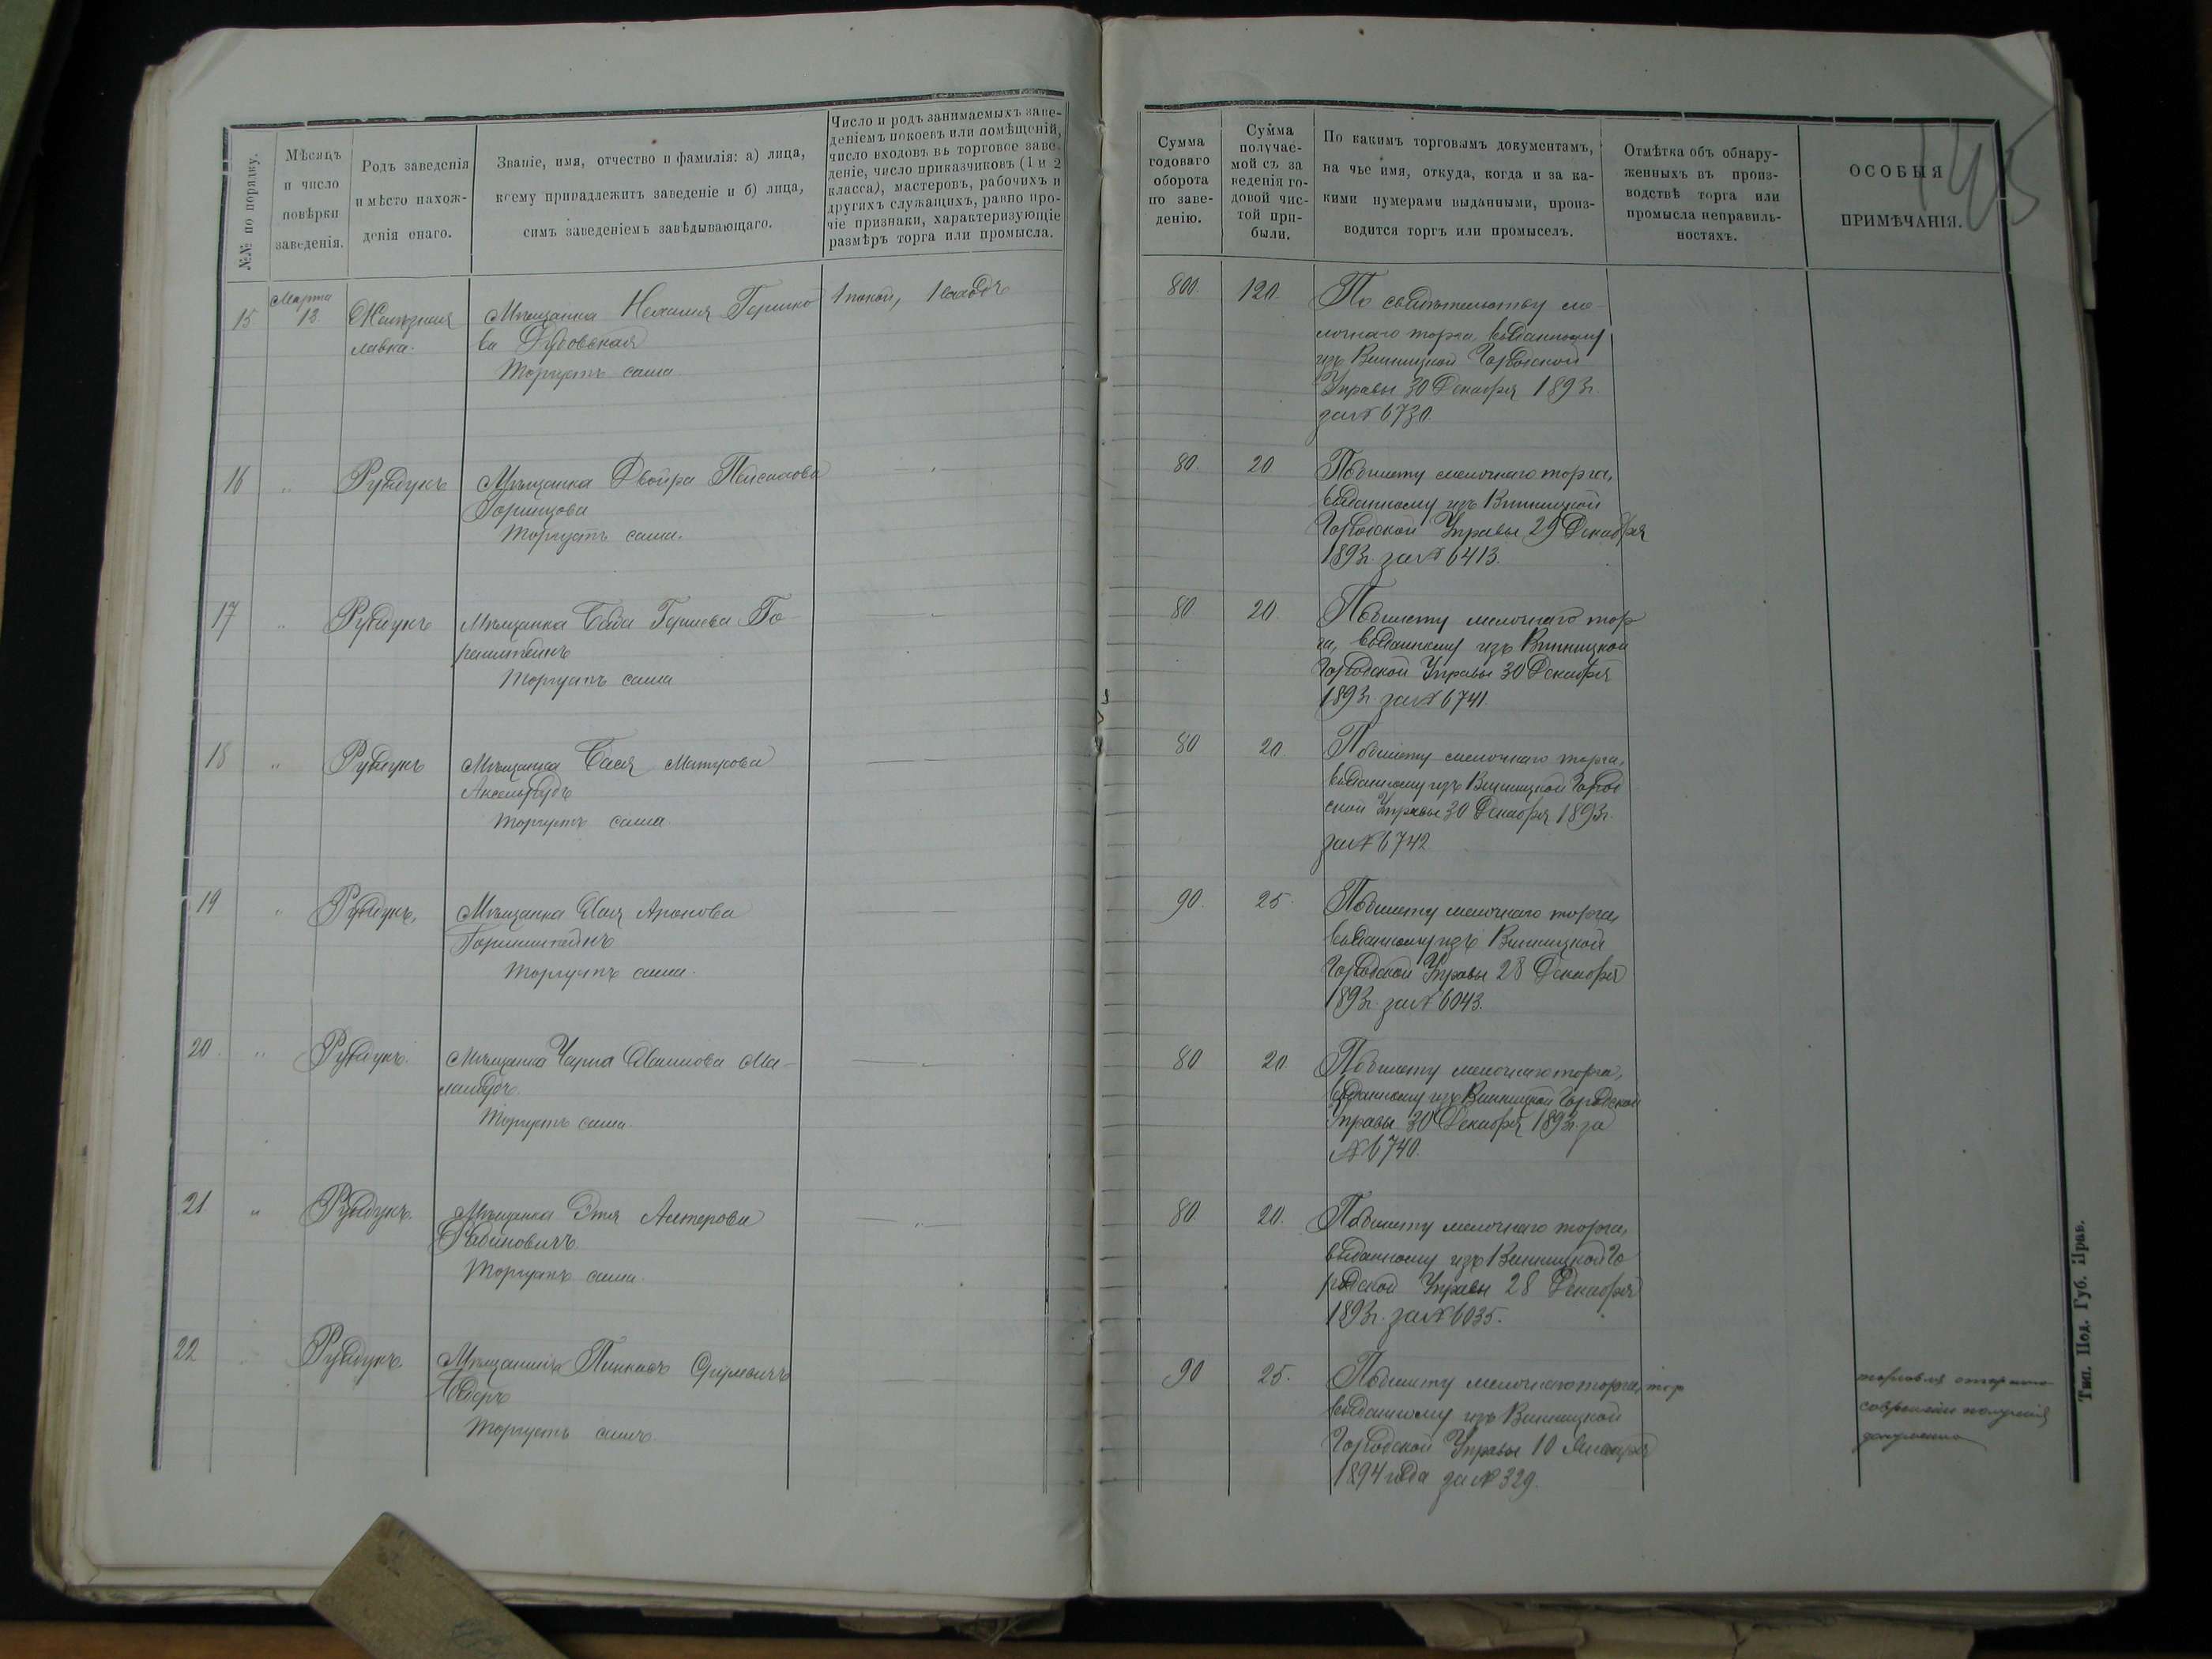 №№ по порядку.
Мѣсяцъ
и число
повѣрки
заведенія.
Родъ заведенія
и мѣсто нахож-
денія онаго.
Званіе, имя, отчество и фамилія: а) лица,
коему принадлежитъ заведеніе и б) лица,
симъ заведеніемъ завѣдывающаго.
Число и родъ занимаемыхъ заве-
деніемъ покоевъ или помѣщеній,
число входовъ въ торговое заве-
деніе, число приказчиковъ (1 и 2
класса), мастеровъ, рабочихъ и
другихъ служащихъ, равно про-
чіе признаки, характеризующіе
размѣръ торга или промысла.
Сумма
годоваго
оборота
по заве-
денію.
Сумма
получае-
мой съ за
веденія го-
довой чис-
той при-
были.
По какимъ торговымъ документамъ,
на чье имя, откуда, когда и за ка-
кими нумерами выданными, произ-
водится торгъ или промыселъ.
Отмѣтка объ обнару-
женныхъ въ произ-
водствѣ торга или
промысла неправиль-
ностяхъ.
ОСОБЫЯ
ПРИМѢЧАНІЯ.
145
15
Марта
13.
Желѣзная
лавка.
Мѣщанка Нехамия Гершко
ва Дубовская
Торгуетъ сама
1 покой, 1 входъ
800.
120.
По свидѣтельству ме-
лочнаго торга, выданному
изъ Винницкой Городской
Управы 30 Декабря 1893г.
за № 6730.
16
"
Рундукъ
Мѣщанка Двойра Пейсахова
Торгуетъ сама.
80.
20
По билету мелочнаго торга,
выданному изъ Винницкой
Городской Управы 29 Декабря
1893г. за № 6413.
17
"
Рундукъ
Мѣщанка Гершева Го-
ренштейнъ
Торгуетъ сама
80
20.
По билету мелочнаго тор
га, выданному изъ Винницкой
Городской Управы 30 Декабря
1893г. за № 6741.
18
"
Рундукъ
Мѣщанка Бася Матусова
Аксельрудъ
Торгуетъ сама.
80
20.
По билету мелочнаго торга,
выданному изъ Винницкой Город
ской Управы 30 Декабря 1893г.
за № 6742
19
"
Рундукъ,
Мѣщанка Хая Аронова
Горенштейнъ
Торгуетъ сама.
90.
25.
По билету мелочнаго торга,
выданному изъ Винницкой
Городской Управы 28 Декабря
1893г. за № 6043.
20.
"
Рундукъ.
Мѣщанка Чарна Хаимова Ма-
ламудъ.
Торгуетъ сама.
80
20.
По билету мелочнаго торга,
выданному изъ Винницкой Городской
Управы 30 Декабря 1893г. за
№ 6740.
21
"
Рундукъ.
Мѣщанка Этя Алтерова
Рабиновичъ.
Торгуетъ сама.
80
20.
По билету мелочнаго торга,
выданному изъ Винницкой Го
родской Управы 28 Декабря
1893г. за № 6035.
22
Рундукъ
Мѣщанинъ Пинхасъ Сруревичъ
Торгуетъ самъ.
90
25.
По билету мелочнаго торга,
выданному изъ Винницкой
Городской Управы 10 Января
1894 года за № 329.
торговля открыта
со времени полученія
документа
Тип. Под. Губ. Прав.